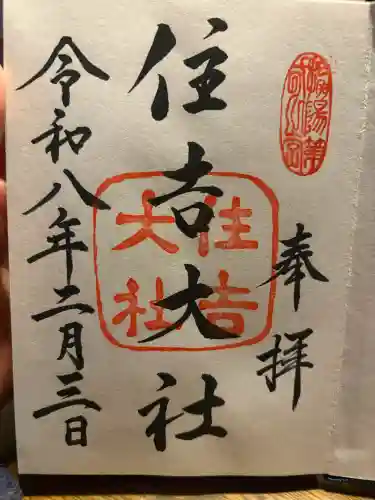 攝陽第
奉拝
住吉大社
住吉
大社
令和八年二月三日